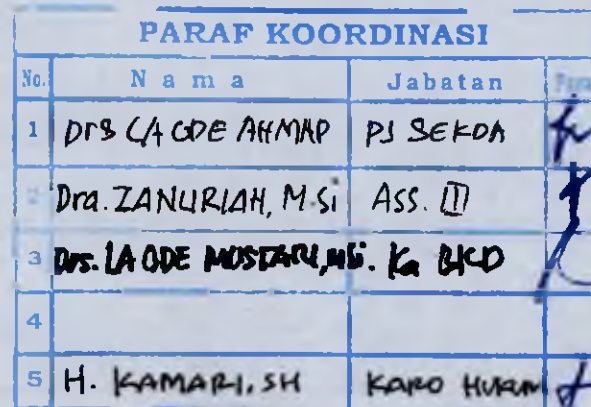 PARAF KOORDINASI
No. Nama Jabatan Paraf
1 Drs LA ODE AHMAD PJ SEKDA
2 Dra. ZANURIAH, M.Si Ass. III
3 Drs. LA ODE MUSTARI, MSi. Ka BKD
4
5 H. KAMARI, SH KARO HUKUM